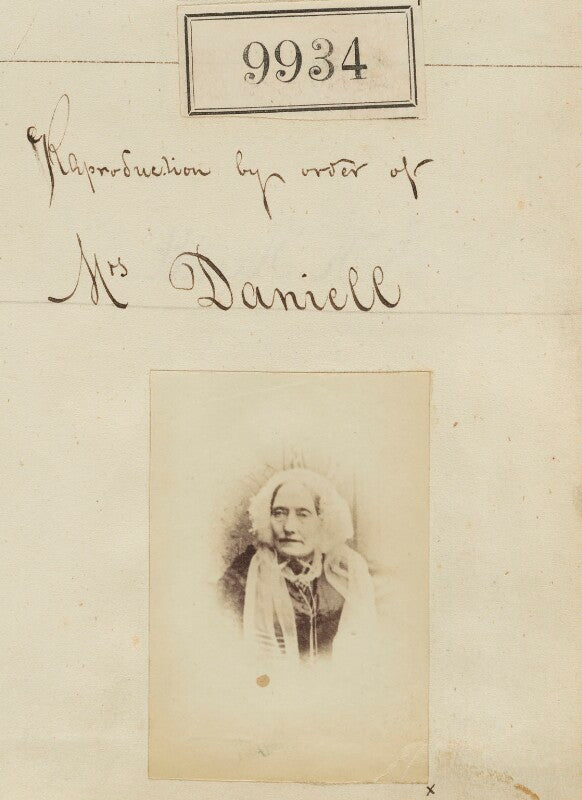 9934
Reproduction by order of
Mrs Daniell
x